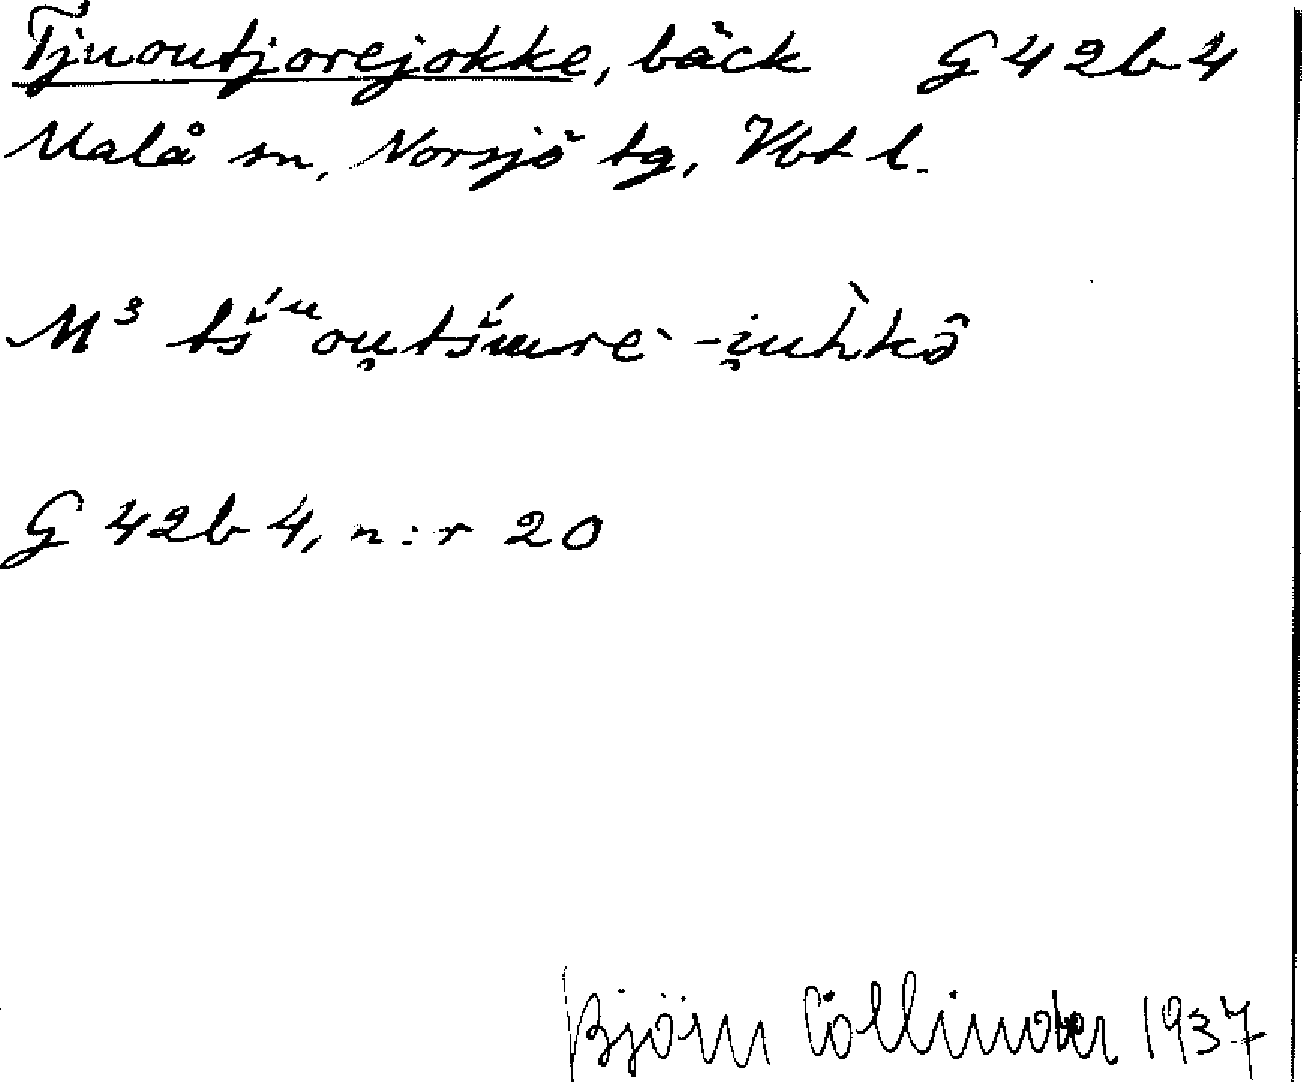 Tjuoutjorejokke, bäck G 42 b 4
Malå sn, Norsjö tg, Vbt l.
M³
G 42 b 4, n:r 20
Björn Collinder 1937